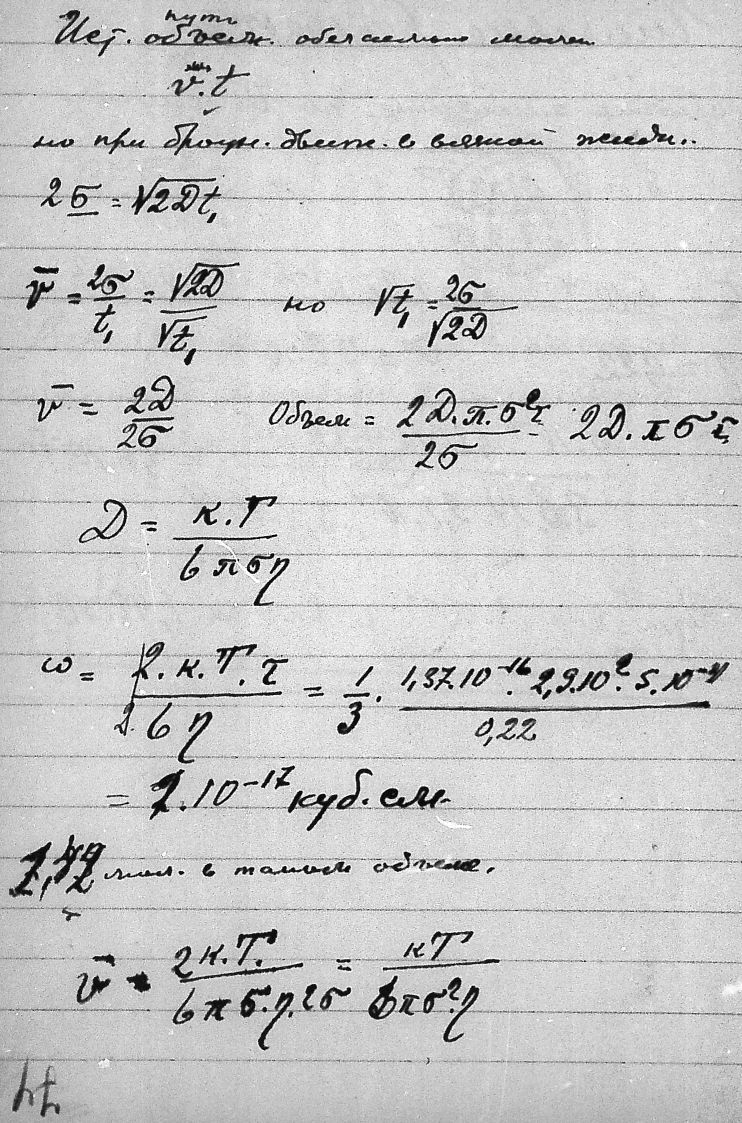 путь
Ист. объем. обычно
v̄.t
но при броун. движ. в вязкой жидк..
2σ = √2Dt₁
v̄ = 2σ/t₁ = √2D/√t₁ но √t₁ = 2σ/√2D
v̄ = 2D/2σ Объем = 2D.π.σ²τ/2σ = 2D.πστ
D = к.T/6πση
ω = 2.к.T.τ/6η = 1/3 . 1,37.10⁻¹⁶.2,9.10².5.10⁻⁴/0,22
= 1.10⁻¹⁷ куб.см.
мол. в таком объеме.
v̄ = 2к.T./6πσ.η.2σ = кT/6πσ².η